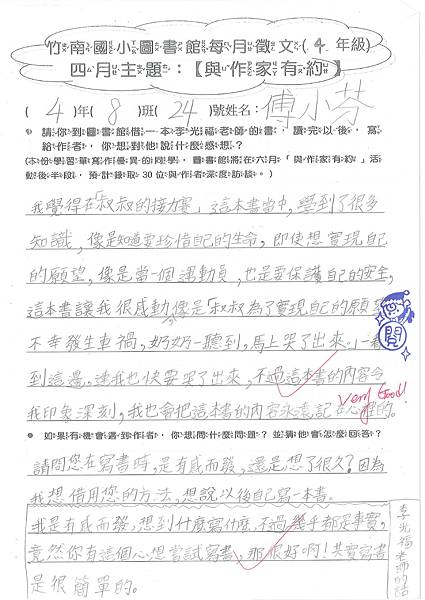 竹南國小圖書館每月徵文(4年級)
四月主題：【與作家有約】
(4)年(8)班(24)號姓名：傅小芬
●請你到圖書館借一本李光福老師的書，讀完以後，寫
給作者，你想對他說什麼感想？
(本份學習單寫作優異的同學，圖書館將在六月，「與作家有約」活
動後半段，預計錄取30位與作者深度訪談。)
我覺得在「叔叔的接力賽」這本書當中，學到了很多
知識，像是知道要珍惜自己的生命，即使想實現自己
的願望，像是當一個運動員，也是要保護自己的安全，
這本書讓我很感動像是「叔叔為了實現自己的願望
不幸發生車禍，奶奶一聽到，馬上哭了出來。」一看
到這邊。連我也快要哭了出來，不過這本書的內容令
我印象深刻，我也會把這本書的內容永遠記在心裡的。
閱
Very Good!
●如果有機會遇到作者，你想問什麼問題？並猜他會怎麼回答？
請問您在寫書時，是有感而發，還是想了很久？因為
我想借用您的方法，想說以後自己寫一本書。
我是有感而發，想到什麼寫什麼，不過幾乎都是事實，
竟然你有這個心想嘗試寫書，那很好啊！其實寫書
是很簡單的。
李光福老師的話